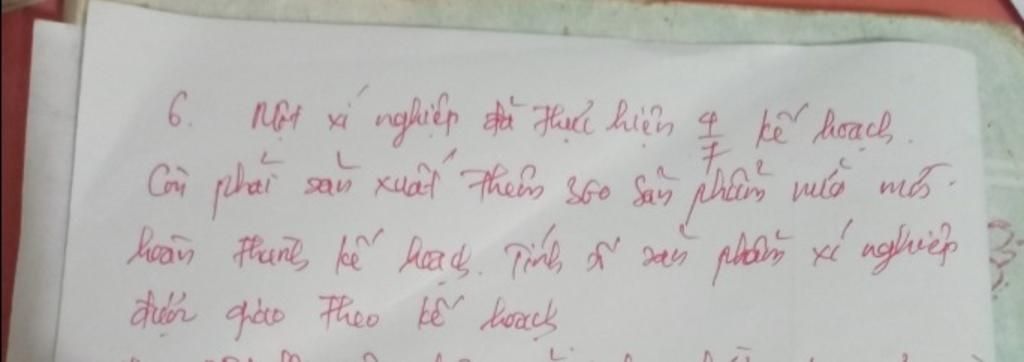 6. Một xí nghiệp đã thực hiện 4/7 kế hoạch.
Còn phải sản xuất thêm 360 sản phẩm nữa mới
hoàn thành kế hoạch. Tính số sản phẩm xí nghiệp
được giao theo kế hoạch